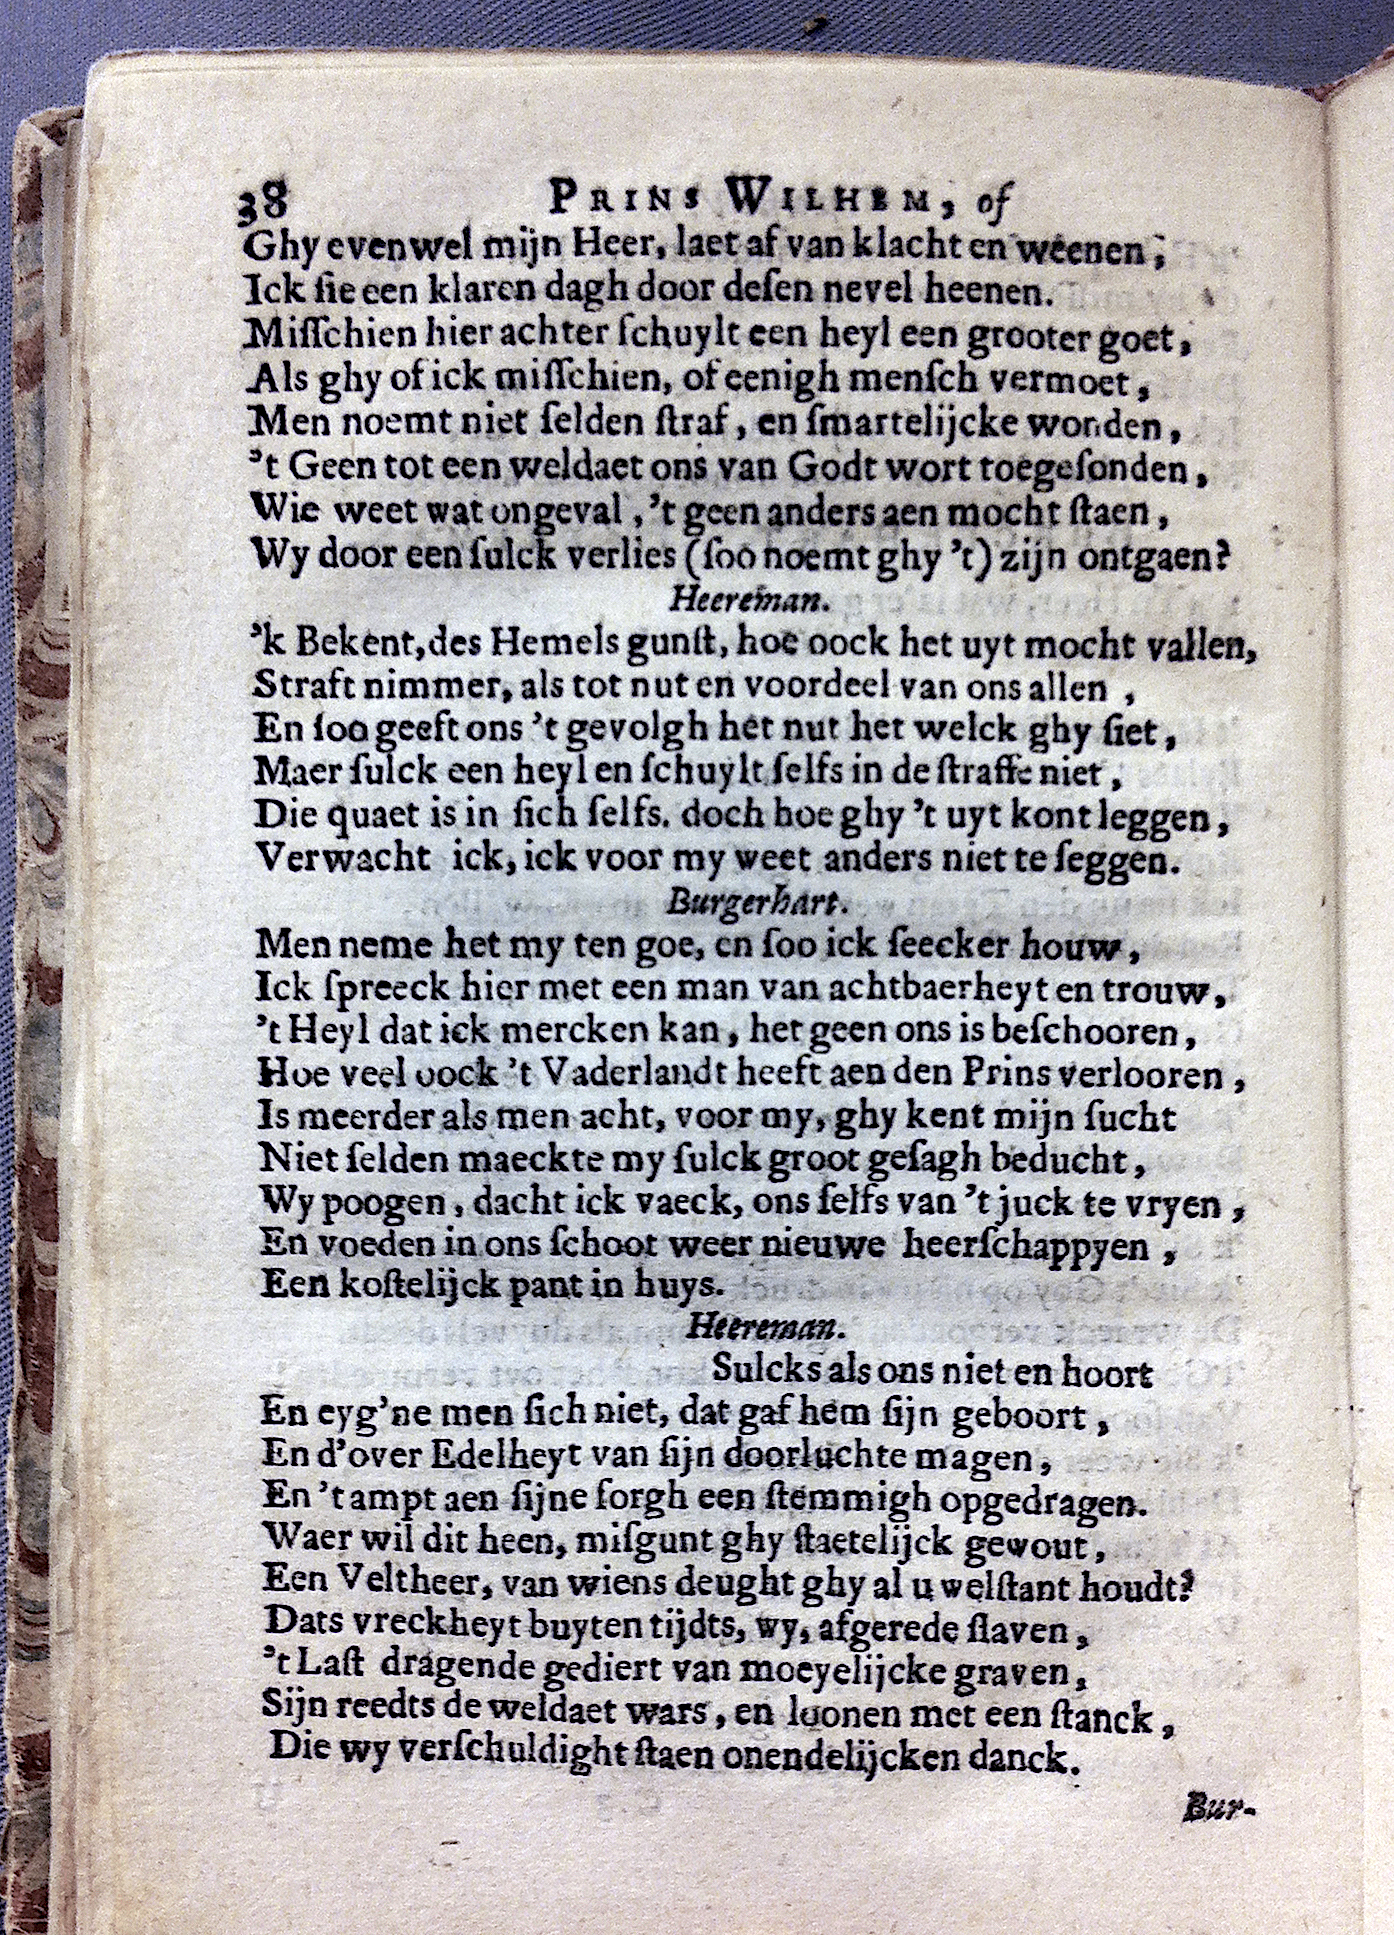 38 PRINS WILHEM, of
Ghy evenwel mijn Heer, laet af van klacht en weenen;
Ick sie een klaren dagh door deſen nevel heenen.
Miſſchien hier achter ſchuylt een heyl een grooter goet,
Als ghy of ick miſſchien, of eenigh menſch vermoet,
Men noemt niet ſelden ſtraf, en ſmartelijcke wonden,
't Geen tot een weldaet ons van Godt wort toegeſonden,
Wie weet wat ongeval, 't geen anders aen mocht ſtaen,
Wy door een ſulck verlies (ſoo noemt ghy 't) zijn ontgaen?
Heereman.
'k Bekent, des Hemels gunſt, hoe oock het uyt mocht vallen,
Straft nimmer, als tot nut en voordeel van ons allen,
En ſoo geeft ons 't gevolgh het nut het welck ghy ſiet,
Maer ſulck een heyl en ſchuylt ſelfs in de ſtraffe niet,
Die quaet is in ſich ſelfs. doch hoe ghy 't uyt kont leggen,
Verwacht ick, ick voor my weet anders niet te ſeggen.
Burgerhart.
Men neme het my ten goe, en ſoo ick ſeecker houw,
Ick ſpreeck hier met een man van achtbaerheyt en trouw,
't Heyl dat ick mercken kan, het geen ons is beſchooren,
Hoe veel oock 't Vaderlandt heeft aen den Prins verlooren,
Is meerder als men acht, voor my, ghy kent mijn ſucht
Niet ſelden maeckte my ſulck groot geſagh beducht,
Wy poogen, dacht ick vaeck, ons ſelfs van 't juck te vryen,
En voeden in ons ſchoot weer nieuwe heerſchappyen,
Een koſtelijck pant in huys.
Heereman.
Sulcks als ons niet en hoort
En eyg'ne men ſich niet, dat gaf hem ſijn geboort,
En d'over Edelheyt van ſijn doorluchte magen,
En 't ampt aen ſijne ſorgh een ſtemmigh opgedragen.
Waer wil dit heen, miſgunt ghy ſtaetelijck gewout,
Een Veltheer, van wiens deught ghy al u welſtant houdt?
Dats vreckheyt buyten tijdts, wy, afgerede ſlaven,
't Laſt dragende gediert van moeyelijcke graven,
Sijn reedts de weldaet wars, en loonen met een ſtanck,
Die wy verſchuldight ſtaen onendelijcken danck.
Bur-